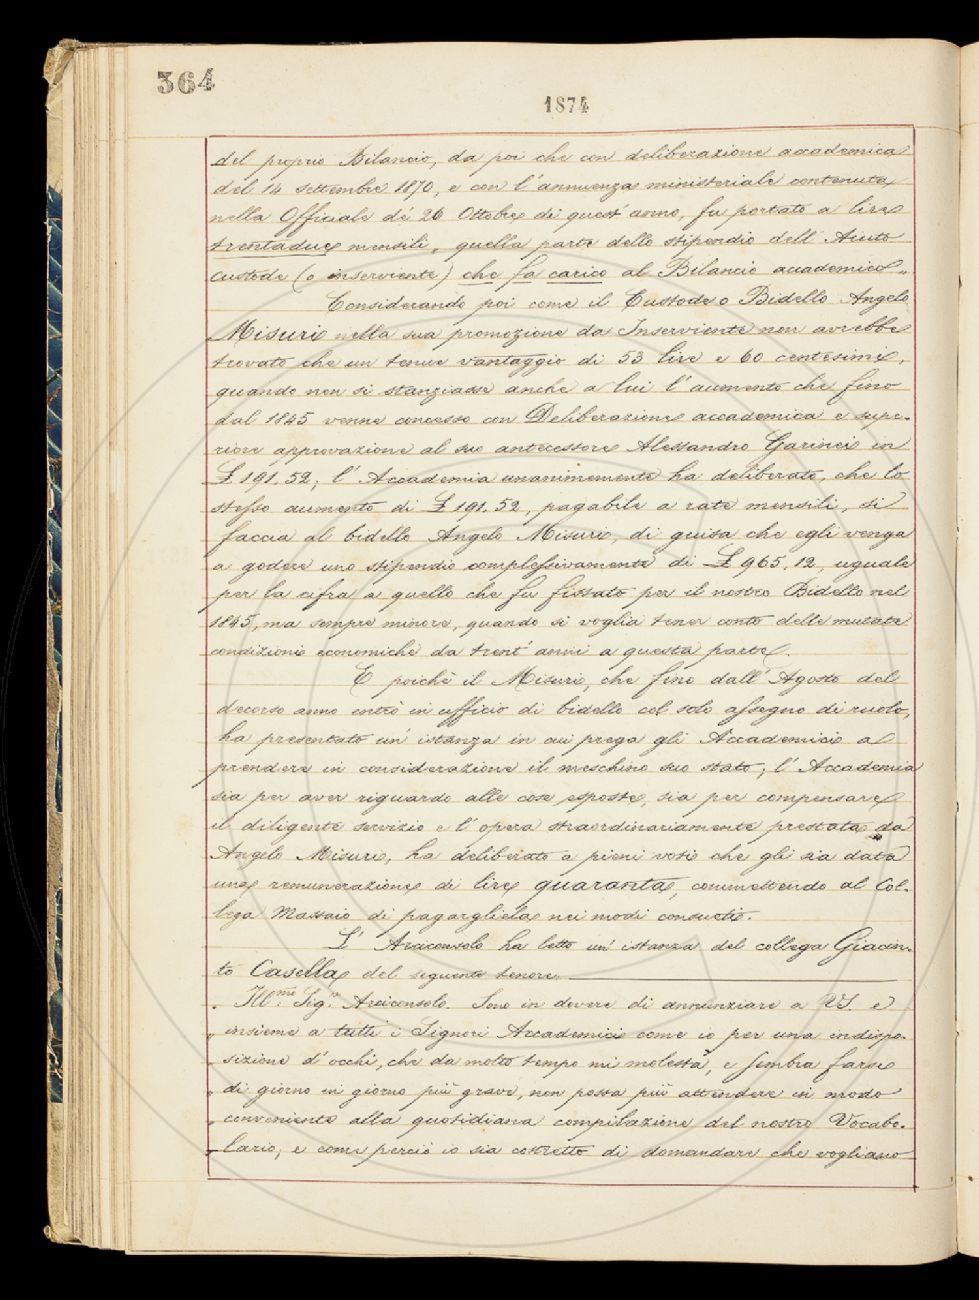 364
1874
del proprio Bilancio, da poi che con deliberazione accademica
del 14 settembre 1870, e con l'annuenza ministeriale contenuta
nella Officiale de' 26 Ottobre di quest'anno, fu portato a lire
trentadue mensili, quella parte dello stipendio dell'Aiuto
custode (o inserviente) che fa carico al Bilancio accademico„.
Considerando poi come il Custode o Bidello Angelo
Misuri nella sua promozione da Inserviente non avrebbe
trovato che un tenue vantaggio di 53 lire e 60 centesimi,
quando non si stanziasse anche a lui l'aumento che fino
dal 1845 venne concesso con Deliberazione accademica e supe-
riore approvazione al suo antecessore Alessandro Garinei in
£ 191.52; l'Accademia unanimemente ha deliberato, che lo
stesso aumento di £ 191.52, pagabile a rate mensili, si
faccia al bidello Angelo Misuri, di guisa che egli venga
a godere uno stipendio complessivamente di £ 965,12, uguale
per la cifra a quello che fu fissato per il nostro Bidello nel
1845, ma sempre minore, quando si voglia tener conto delle mutate
condizioni economiche da trent'anni a questa parte.
E poichè il Misuri, che fino dall'Agosto del
decorso anno entrò in ufficio di bidello col solo assegno di ruolo,
ha presentato un'istanza in cui prega gli Accademici a
prendere in considerazione il meschino suo stato; l'Accademia
sia per aver riguardo alle cose esposte, sia per compensare
il diligente servizio e l'opera straordinariamente prestata da
Angelo Misuri, ha deliberato a pieni voti che gli sia data
una remunerazione di lire quaranta, commettendo al Col-
lega Massaio di pagargliela nei modi consueti.
L'Arciconsolo ha letto un'istanza del collega Giacin-
to Casella del seguente tenore.
„ Ill.mo Sig.r Arciconsolo. Sono in dovere di annunziare a VS. e
„ insieme a tutti i Signori Accademici come io per una indispo-
„ sizione d'occhi, che da molto tempo mi molesta, e sembra farsi
„ di giorno in giorno più grave, non possa più attendere in modo
„ conveniente alla quotidiana compilazione del nostro Vocabo-
„ lario; e come perciò io sia costretto di domandare che vogliano